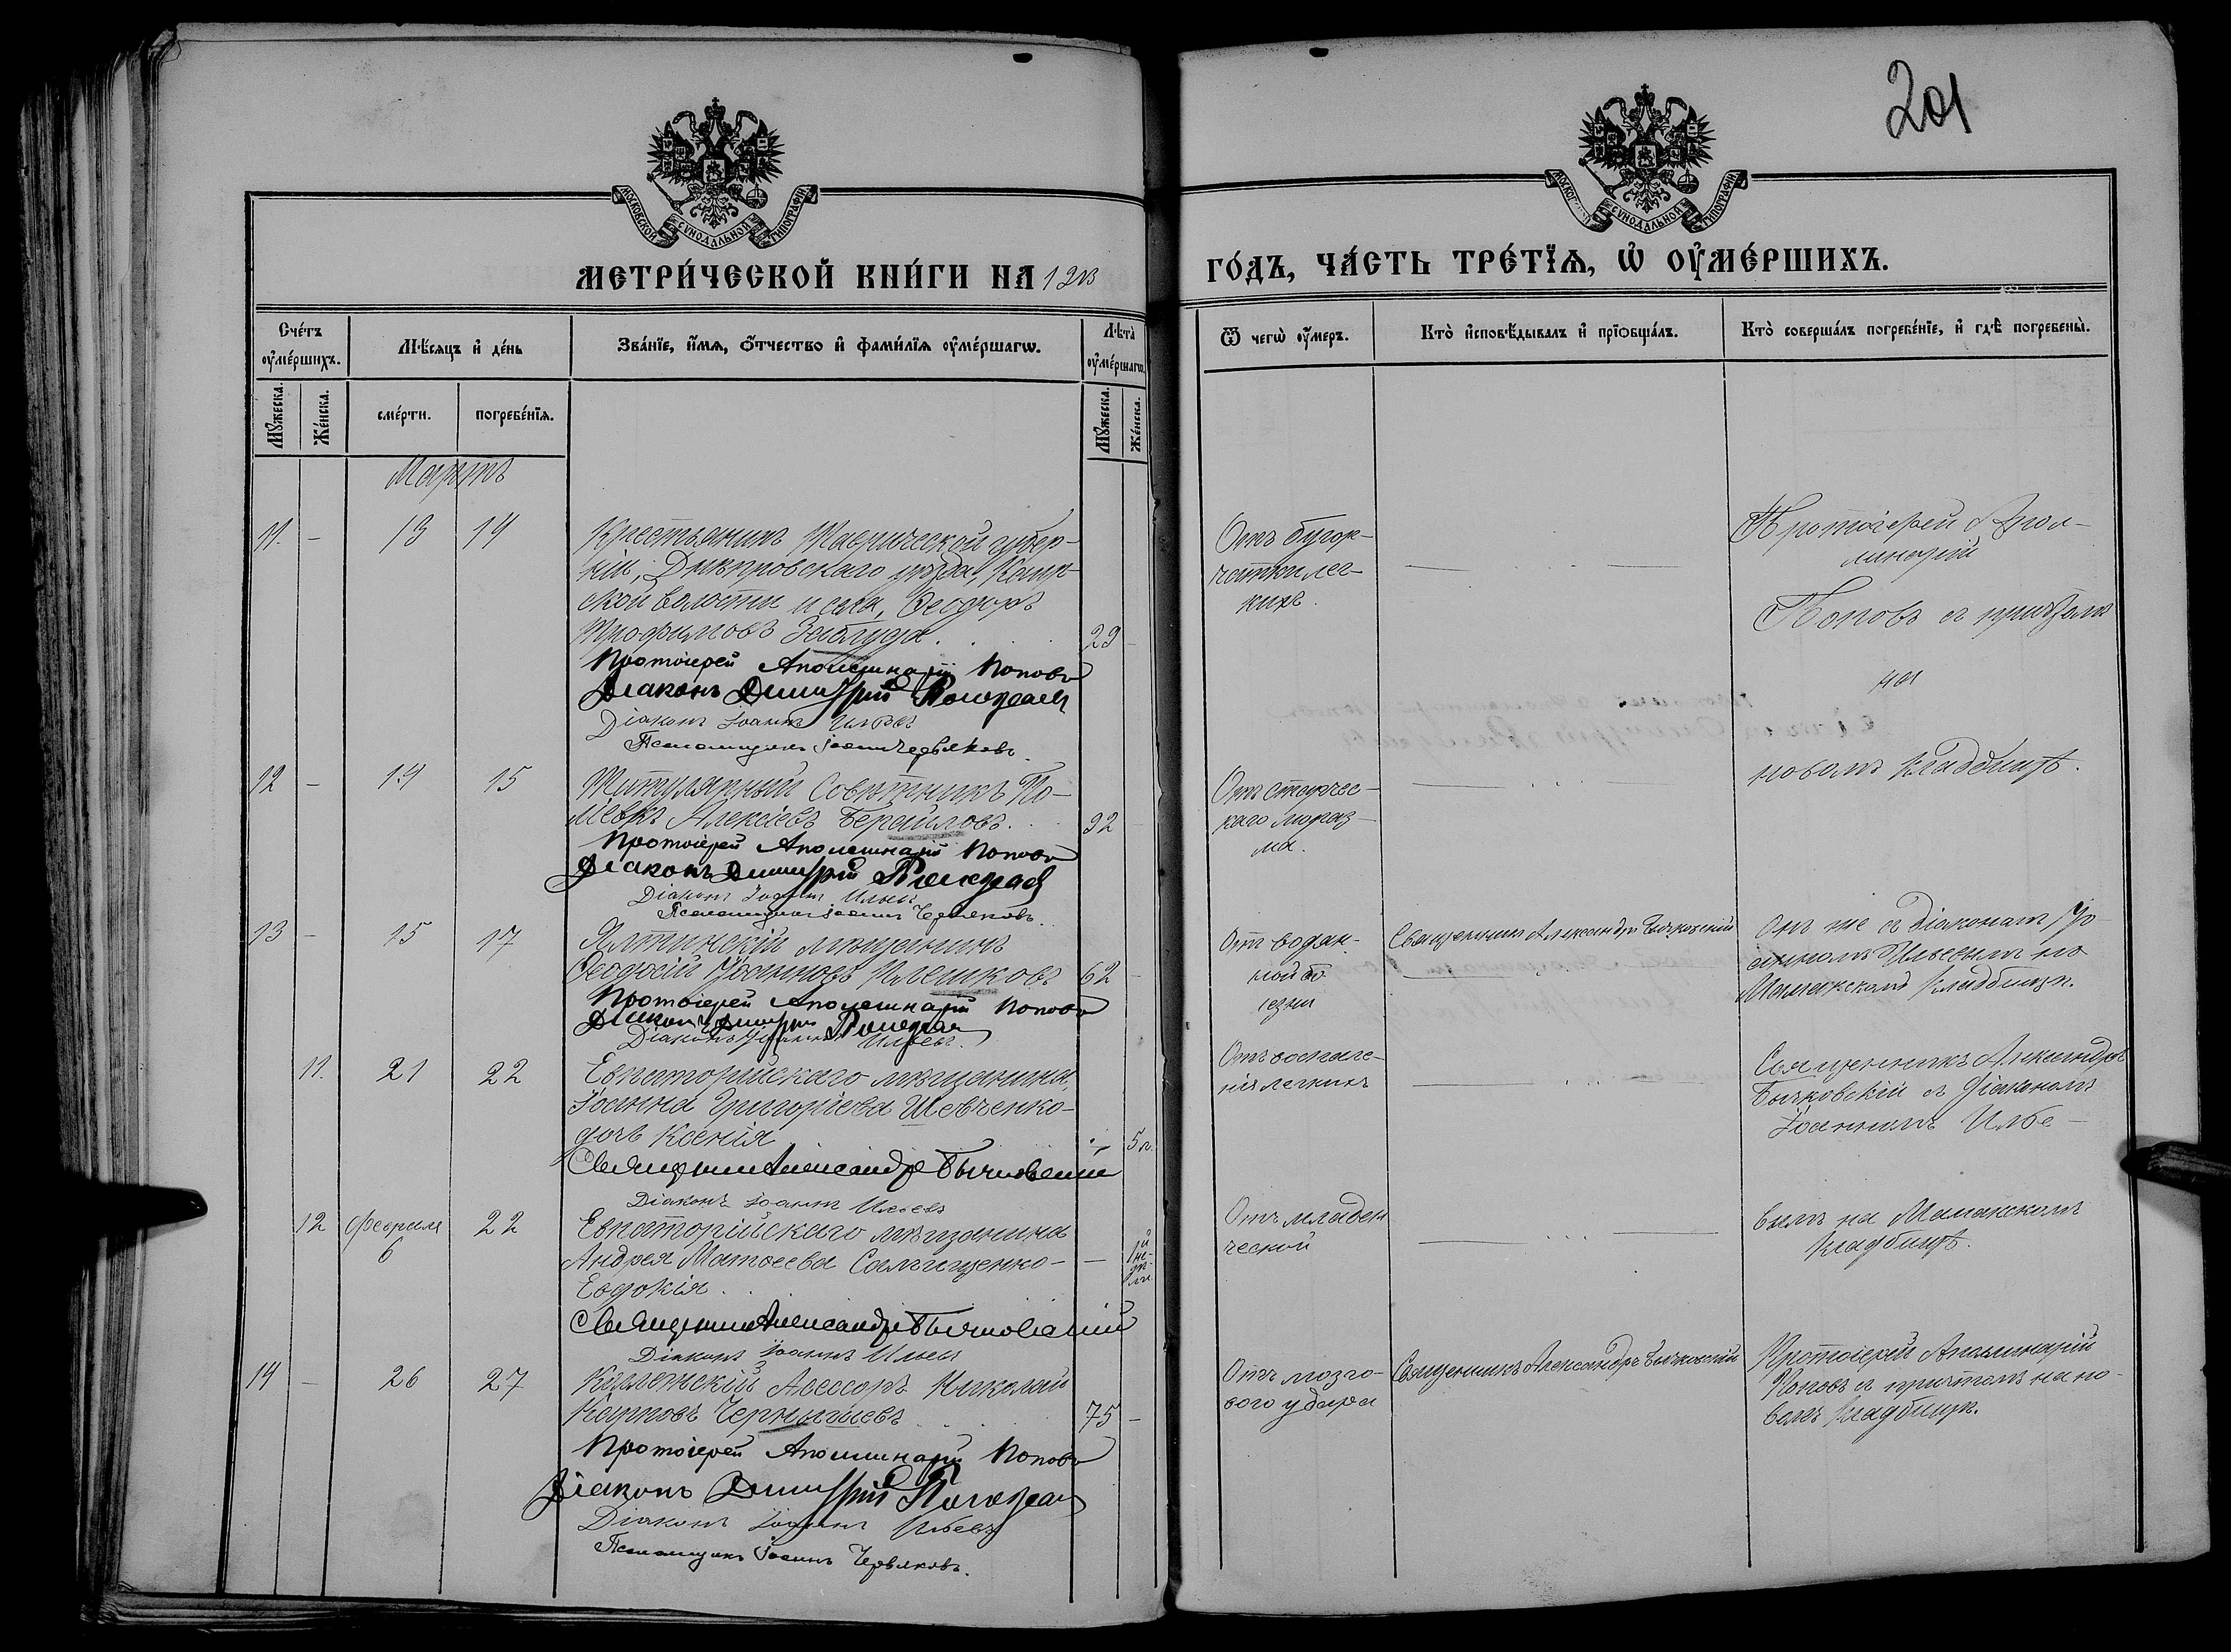 201
МОСКОВСКОЙ СѴНОДАЛЬНОЙ ТИПОГРАФІИ
МОСКОВСКОЙ СѴНОДАЛЬНОЙ ТИПОГРАФІИ
МЕТРИ́ЧЕСКОЙ КНИ́ГИ НА
ГО́ДЪ, ЧА́СТЬ ТРЕ́ТЇѦ, Ѡ҆ ОУ҆МЕ́РШИХЪ.
Сче́тъ оу҆ме́ршихъ.
Мѣ́сяцъ и҆ де́нь
Зва́нїе, и҆́мѧ, ѻ҆́тчество и҆ фами́лїѧ оу҆ме́ршагѡ.
Лѣ̀та оу҆ме́ршагѡ.
Ѿ чегѡ̀ оу҆́меръ.
Кто̀ и҆сповѣ́дывалъ и҆ прїѡбща́лъ.
Кто̀ соверша́лъ погребе́нїе, и҆ гдѣ̀ погребены̀.
Мꙋ́жеска.
Же́нска.
сме́рти.
погребе́нїѧ.
Мꙋ́жеска.
Же́нска.
Мартъ
11. - 13 14
Крестьянинъ Таврической губер-
ніи, Днѣпровскаго уѣзда, Каир-
ской волости и села, Ѳеодоръ
Трофимовъ
29 -
Протоіерей Аполлинарій Поповъ
Діаконъ Димитрій
Діаконъ Іоаннъ Ильевъ
Псаломщикъ Іоаннъ Червяковъ.
Отъ бугор-
чатки лег-
кихъ.
Протоіерей Апол-
линарій
Поповъ съ причтомъ
на
новомъ кладбищѣ.
12 - 14 15
Титулярный Совѣтникъ
Алексіевъ
92 -
Протоіерей Аполлинарій Поповъ
Діаконъ Димитрій
Діаконъ Іоаннъ Ильевъ
Псаломщикъ Іоаннъ Червяковъ.
Отъ старчес-
каго мараз-
ма.
13 - 15 17
Ялтинскій мѣщанинъ
Ѳеодосій Іоанновъ Плешковъ
62 -
Протоіерей Аполлинарій Поповъ
Діаконъ Димитрій
Діаконъ Іоаннъ Ильевъ.
Отъ водян-
ной бо
лѣзни
Священникъ Александръ Бычковскій
Онъ же съ діакономъ Іо-
анномъ Ильевымъ на
Мамакскомъ кладбищѣ.
11. 21 22
Евпаторійскаго мѣщанина
Іоанна Григоріева Шевченко-
дочь Ксенія
- 5 л.
Священникъ Александръ Бычковскій
Діаконъ Іоаннъ Ильевъ
Отъ воспале-
нія легкихъ
Священникъ Александръ
Бычковскій съ діакономъ
Іоанномъ Илье-
12 Февраля 22
6
Евпаторійскаго мѣщанина
Андрея Матѳеева
Евдокія.
Священникъ Александръ Бычковскій
Діаконъ Іоаннъ Ильевъ
Отъ младен
ческой
вымъ на Мамакскомъ
кладбищѣ.
14 - 26 27
Коллежскій Асесоръ Николай
Карповъ
75 -
Протоіерей Аполлинарій Поповъ
Діаконъ Димитрій
Діаконъ Іоаннъ Ильевъ
Псаломщикъ Іоаннъ Червяковъ.
Отъ мозго-
вого удара
Священникъ Александръ Бычковскій
Протоіерей Аполлинарій
Поповъ съ причтомъ на но-
вомъ кладбищѣ.